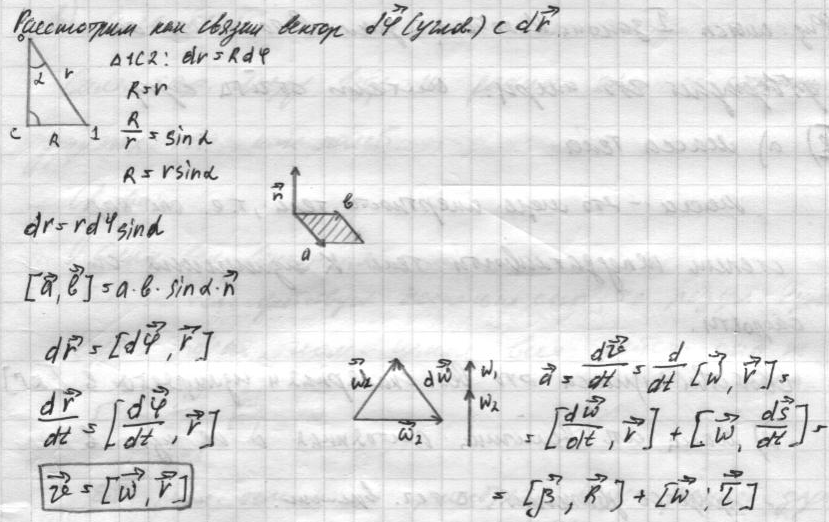 Рассмотрим как связан вектор dφ⃗ (углов.) с dr⃗
0
α
r
C
R
1
Δ1C2: dr = Rdφ
R = r
R/r = sinα
R = r sinα
n⃗
b
a
dr = rdφ sinα
[a⃗, b⃗] = a·b·sinα·n⃗
dr⃗ = [dφ⃗, r⃗]
dr⃗/dt = [dφ⃗/dt, r⃗]
v⃗ = [w⃗, r⃗]
w⃗₂
dw⃗
w⃗₂
w₁
w₂
a⃗ = dv⃗/dt = d/dt [w⃗, r⃗] =
= [dw⃗/dt, r⃗] + [w⃗, ds⃗/dt] =
= [β⃗, R⃗] + [w⃗; v⃗]